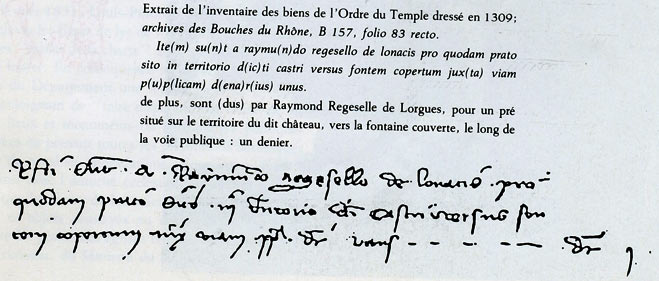 Extrait de l'inventaire des biens de l'Ordre du Temple dressé en 1309;
archives des Bouches du Rhône, B 157, folio 83 recto.
Ite(m) su(n)t a raymu(n)do regesello de lonacis pro quodam prato
sito in territorio d(ic)ti castri versus fontem copertum jux(ta) viam
p(u)p(licam) d(ena)r(ius) unus.
de plus, sont (dus) par Raymond Regeselle de Lorgues, pour un pré
situé sur le territoire du dit château, vers la fontaine couverte, le long de
la voie publique : un denier.
a regesello de lonacis pro
quodam castri versus fon
viam